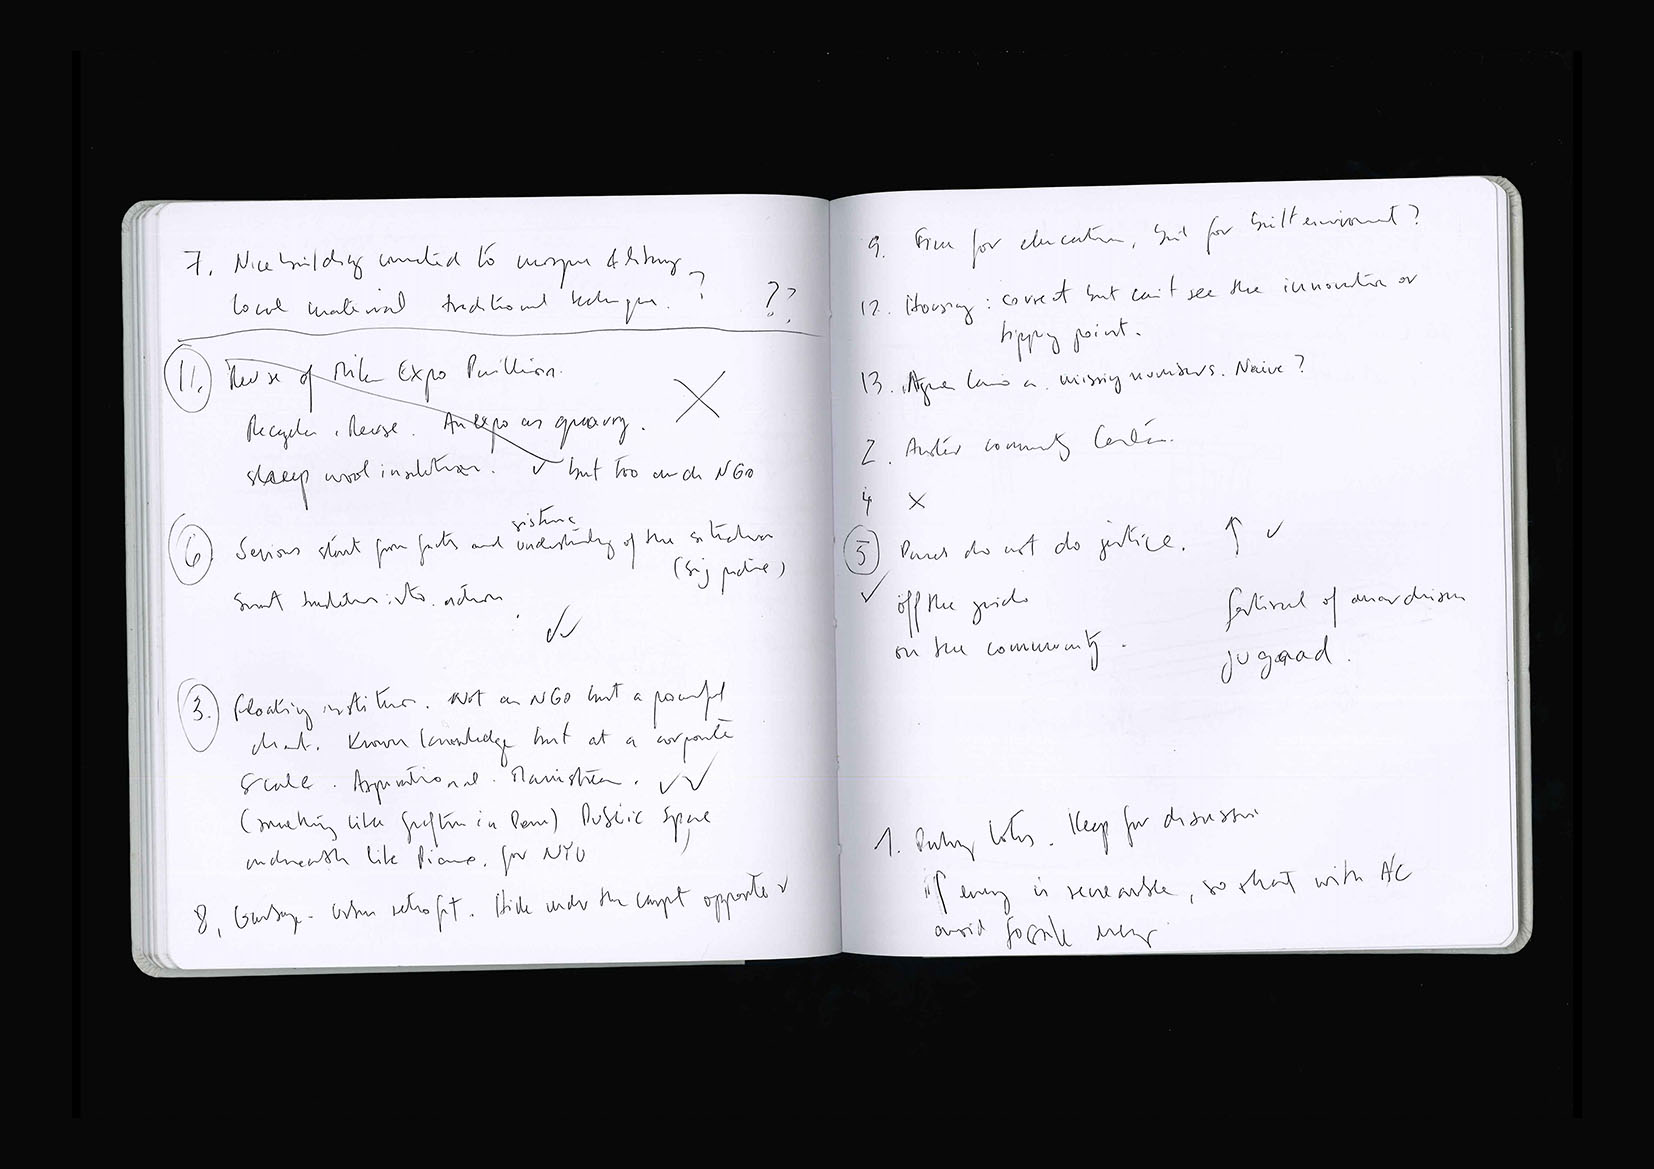 7. Nice building connected to mosque & library
local material traditional technique. ? ??
11. Reuse of Milan Expo Pavillion.
Recycle, Reuse. An expo as quarry.
sheep wool insulation. but too much NGO
6 Serious start from facts and understanding of the situation
(big picture)
Smart tradition into action
3. Floating institution. Not an NGO but a powerful
client. Known knowledge but at a corporate
scale. Aspirational. Mainstream.
(something like in ) Public Space
underneath like Piano, for NYU
8. Garbage - Urban retrofit. Hide under the carpet opposite
9. Fine for education, but for built environment?
12. Housing: correct but can't see the innovation or
tipping point.
13. missing numbers. Naive?
2. Another community Center.
4 X
5 Panels do not do justice.
off the grid
on the community.
festival of
jugaad.
1. Keep for discussion
if energy is renewable, so what with AC
avoid fossile energy